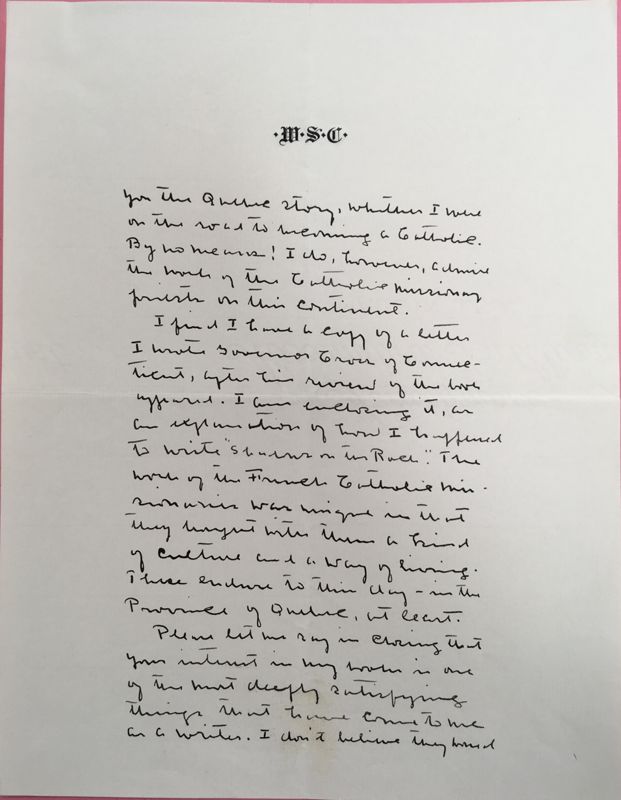 ·W·S·C·
you the Quebec story, whether I were
on the road to becoming a Catholic.
By no means! I do, however, admire
the work of the Catholic missionary
priests on this continent.
I find I have a copy of a letter
I wrote Governor Cross of Connec-
ticut, after his review of the book
appeared. I am enclosing it, as
an explanation of how I happened
to write "Shadows on the Rock". The
work of the French Catholic mis-
sionaries was unique in that
they brought with them a kind
of culture and a way of living.
These endure to this day - in the
Province of Quebec, at least.
Please let me say in closing that
your interest in my books is one
of the most deeply satisfying
things that have come to me
as a writer. I don't believe they